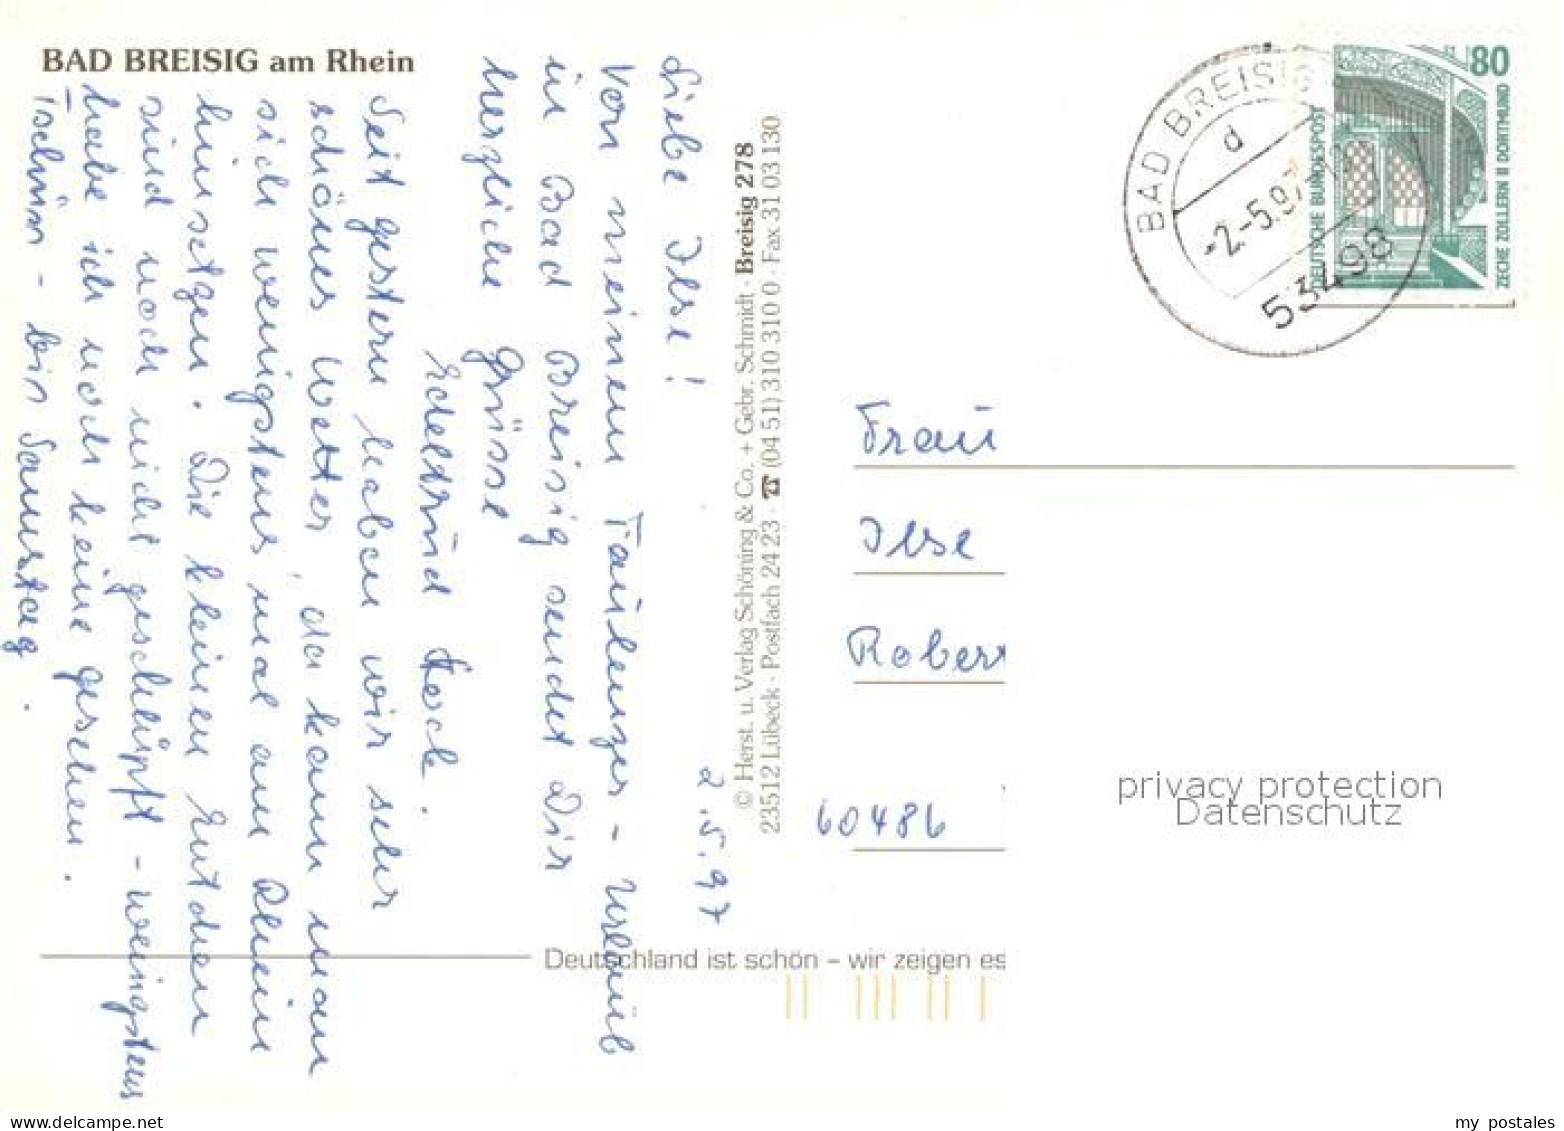 BAD BREISIG am Rhein
2.5.97
Liebe Ilse!
Von meinem Faulenzer-Urlaub
in Bad Breisig sendet Dir
herzliche Grüsse
Edeltrud
Seit gestern haben wir sehr
schönes Wetter, da kann man
sich wenigstens mal am Rhein
hinsetzen. Die kleinen Entchen
sind noch nicht geschlüpft - wenigstens
habe ich noch keine gesehen.
Tschüss - bis Samstag.
© Herst. u. Verlag Schöning & Co. + Gebr. Schmidt · Breisig 278
23512 Lübeck · Postfach 24 23 · ☎ (04 51) 310 310 0 · Fax 31 03 130
BAD BREISIG
d
-2.-5.97
53498
80
DEUTSCHE BUNDESPOST
ZECHE ZOLLERN II DORTMUND
Frau
Ilse
Robert
60486
privacy protection
Datenschutz
Deutschland ist schön – wir zeigen es
my postales